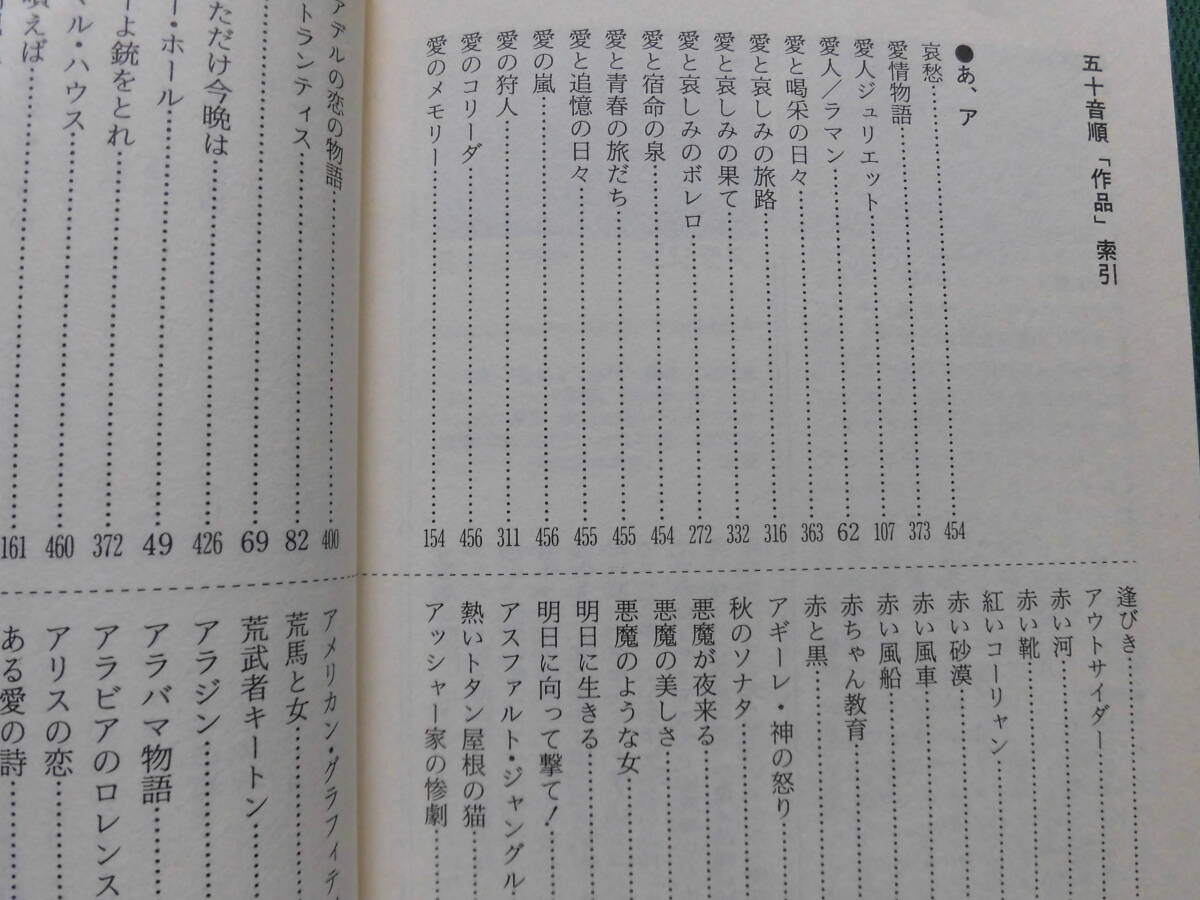 五十音順「作品」索引
●あ、ア
哀愁……454
愛情物語……373
愛人ジュリエット……107
愛人／ラマン……62
愛と喝采の日々……363
愛と哀しみの旅路……316
愛と哀しみの果て……332
愛と哀しみのボレロ……272
愛と宿命の泉……454
愛と青春の旅だち……455
愛と追憶の日々……455
愛の嵐……456
愛の狩人……311
愛のコリーダ……456
愛のメモリー……154
逢びき……
アウトサイダー……
赤い河……
赤い靴……
紅いコーリャン……
赤い砂漠……
赤い風車……
赤い風船……
赤ちゃん教育……
赤と黒……
アギーレ・神の怒り……
秋のソナタ……
悪魔が夜来る……
悪魔の美しさ……
悪魔のような女……
明日に生きる……
明日に向って撃て！……
アスファルト・ジャングル
熱いトタン屋根の猫……
アッシャー家の惨劇
アデルの恋の物語……400
トランティス……82
ただけ今晩は……69
ー・ホール……426
ーよ銃をとれ……49
マル・ハウス……372
噴えば……460
161
アメリカン・グラフィテ
荒馬と女……
荒武者キートン……
アラジン……
アラバマ物語……
アラビアのロレンス
アリスの恋……
ある愛の詩……